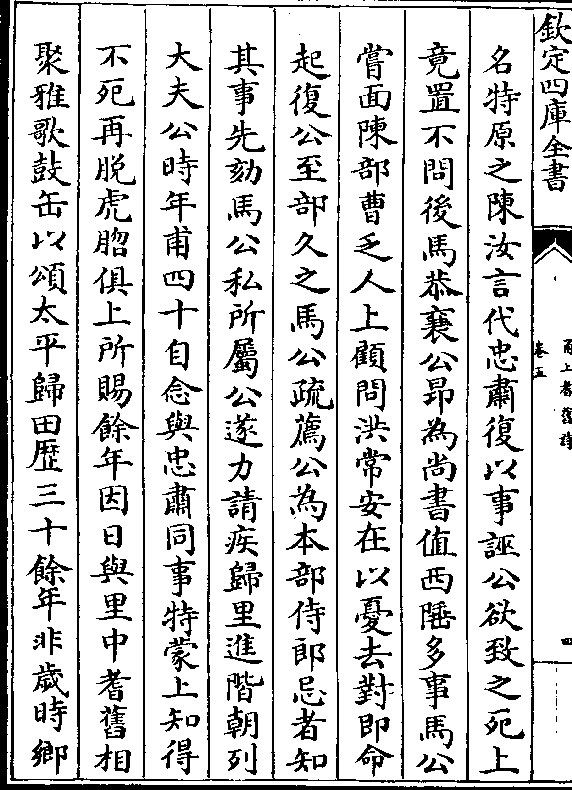 欽定四庫全書
甬上耆舊詩
卷五
四
名特原之陳汝言代忠肅復以事誣公欲致之死上
竟置不問後馬恭襄公昂為尚書值西陲多事馬公
嘗面陳部曹乏人上顧問洪常安在以憂去對即命
起復公至部久之馬公疏薦公為本部侍郎忌者知
其事先劾馬公私所屬公遂力請疾歸里進階朝列
大夫公時年甫四十自念與忠肅同事特蒙上知得
不死再脫虎䐇俱上所賜餘年因日與里中耆舊相
聚雅歌鼓缶以頌太平歸田歷三十餘年非歲時鄉